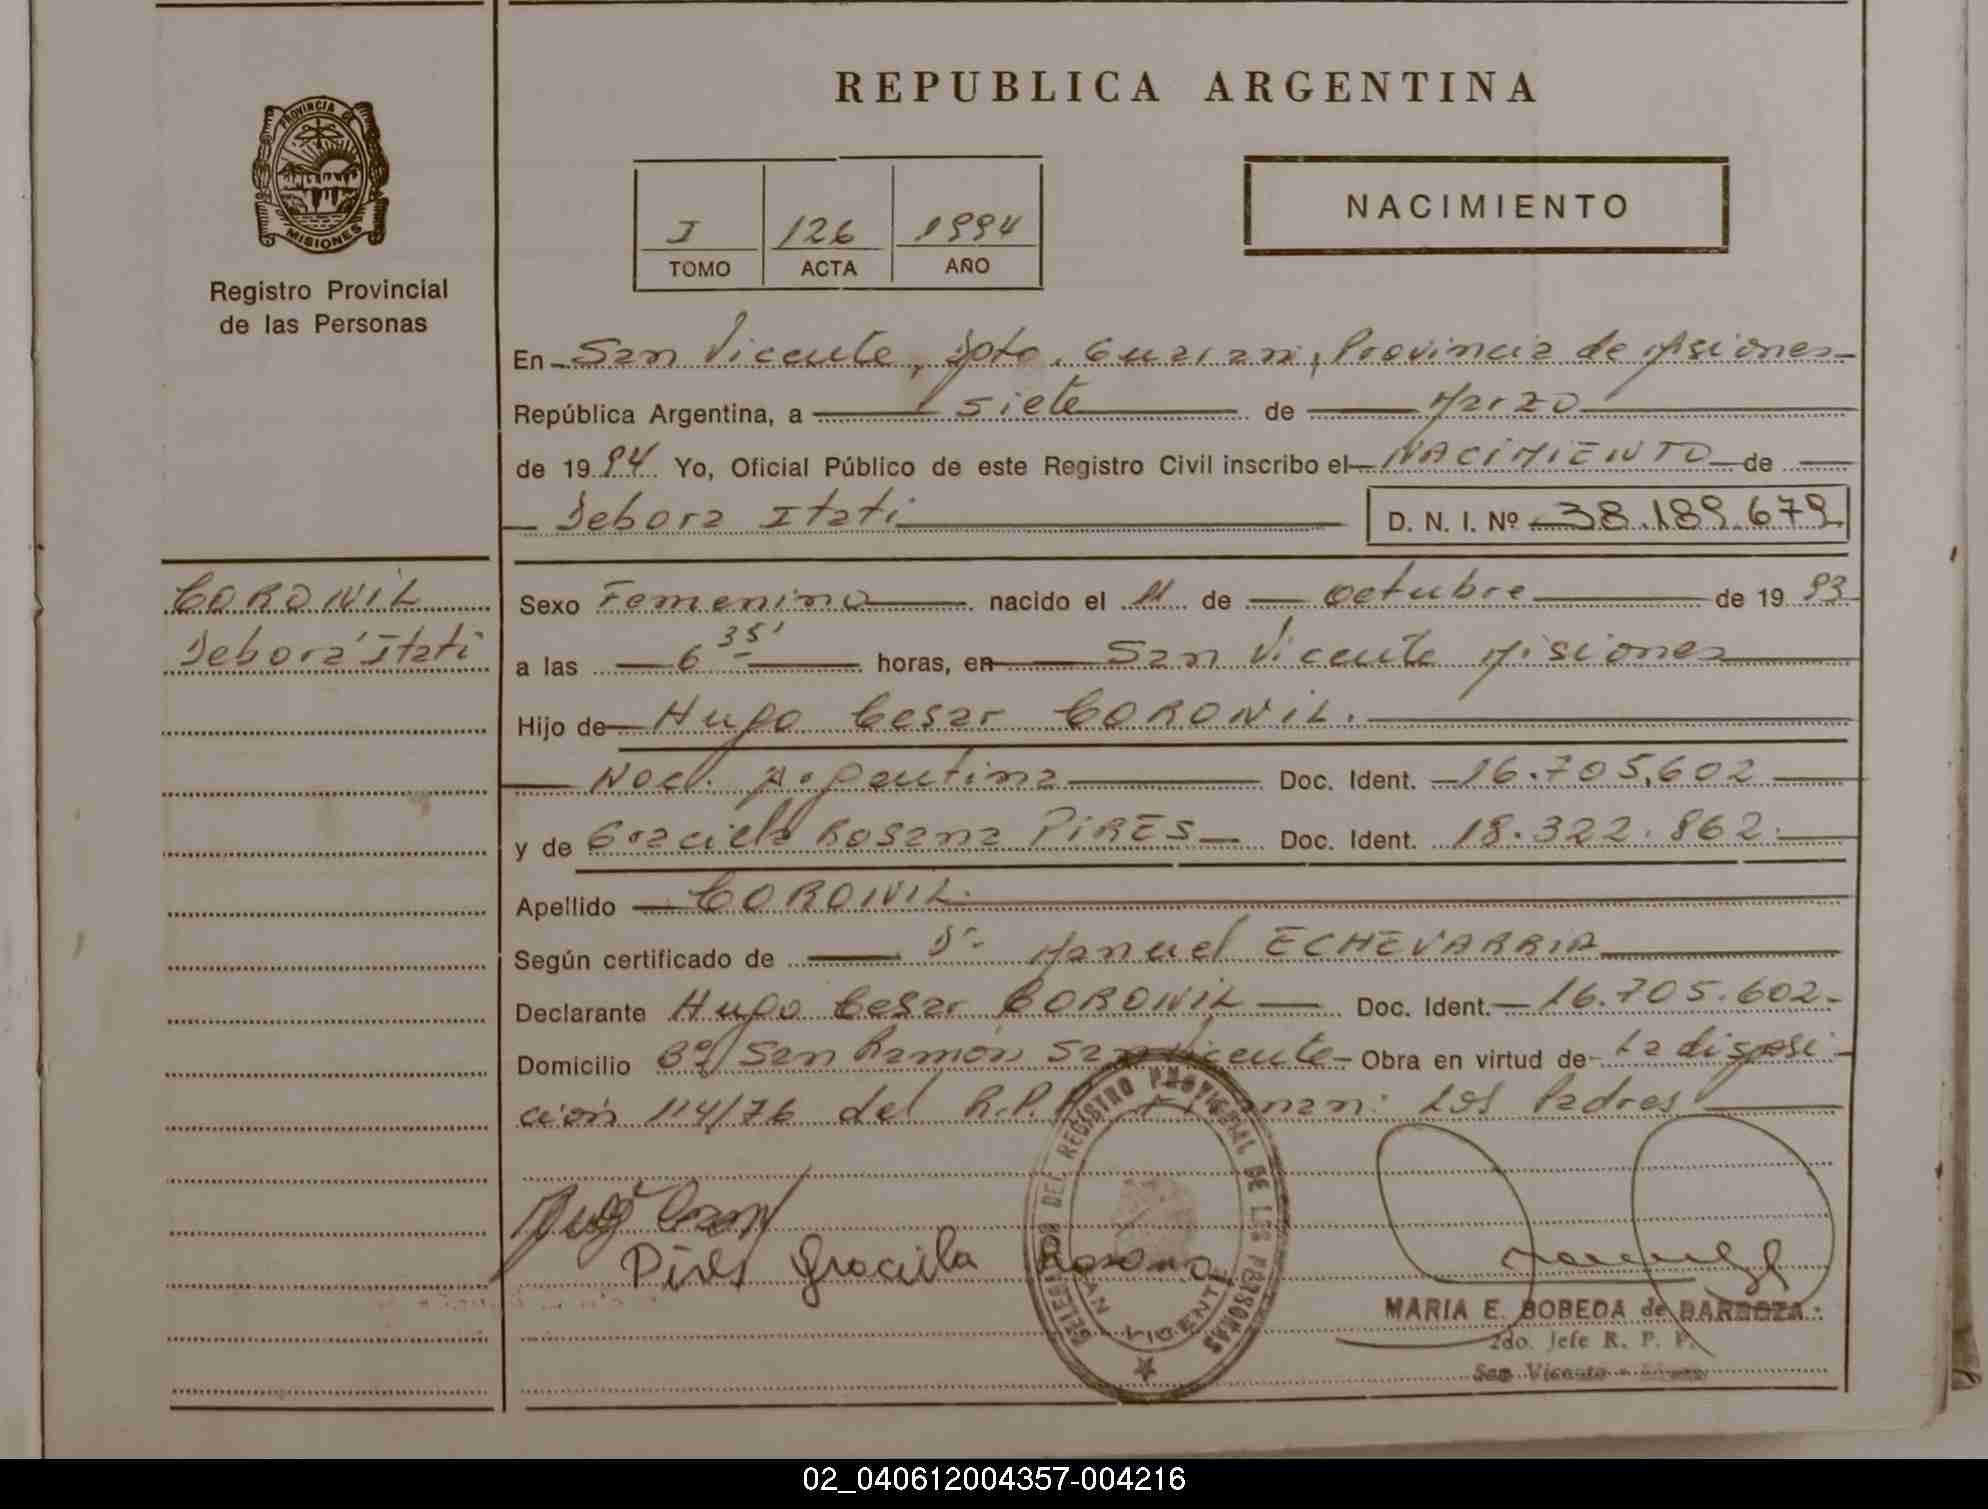 REPUBLICA ARGENTINA
PROVINCIA DE
MISIONES
Registro Provincial
de las Personas
I 126 1994
TOMO ACTA AÑO
NACIMIENTO
En San Vicente, Dpto. Guarani, Provincia de Misiones
República Argentina, a siete de Marzo
de 1994 Yo, Oficial Público de este Registro Civil inscribo el NACIMIENTO de
Debora Itati D. N. I. Nº 38.189.679
CORONIL
Debora Itati
Sexo Femenino nacido el 11 de octubre de 1993
a las 6 35' horas, en San Vicente Misiones
Hijo de Hugo Cesar CORONIL.
Nac. Argentina Doc. Ident. 16.705.602
y de Graciela Rosana PIRES Doc. Ident. 18.322.862
Apellido CORONIL
Según certificado de Dr. Manuel ECHEVARRIA
Declarante Hugo Cesar CORONIL Doc. Ident. 16.705.602
Domicilio Bº San Ramón San Vicente Obra en virtud de La disposi-
ción 114/76 del R.P.P. Los Padres
Pires Graciela Rosana
DELEGACION DEL REGISTRO PROVINCIAL DE LAS PERSONAS
SAN VICENTE
MARIA E. BOBEDA de BARBOZA
2do. Jefe R. P. P.
San Vicente - Misiones
02_040612004357-004216